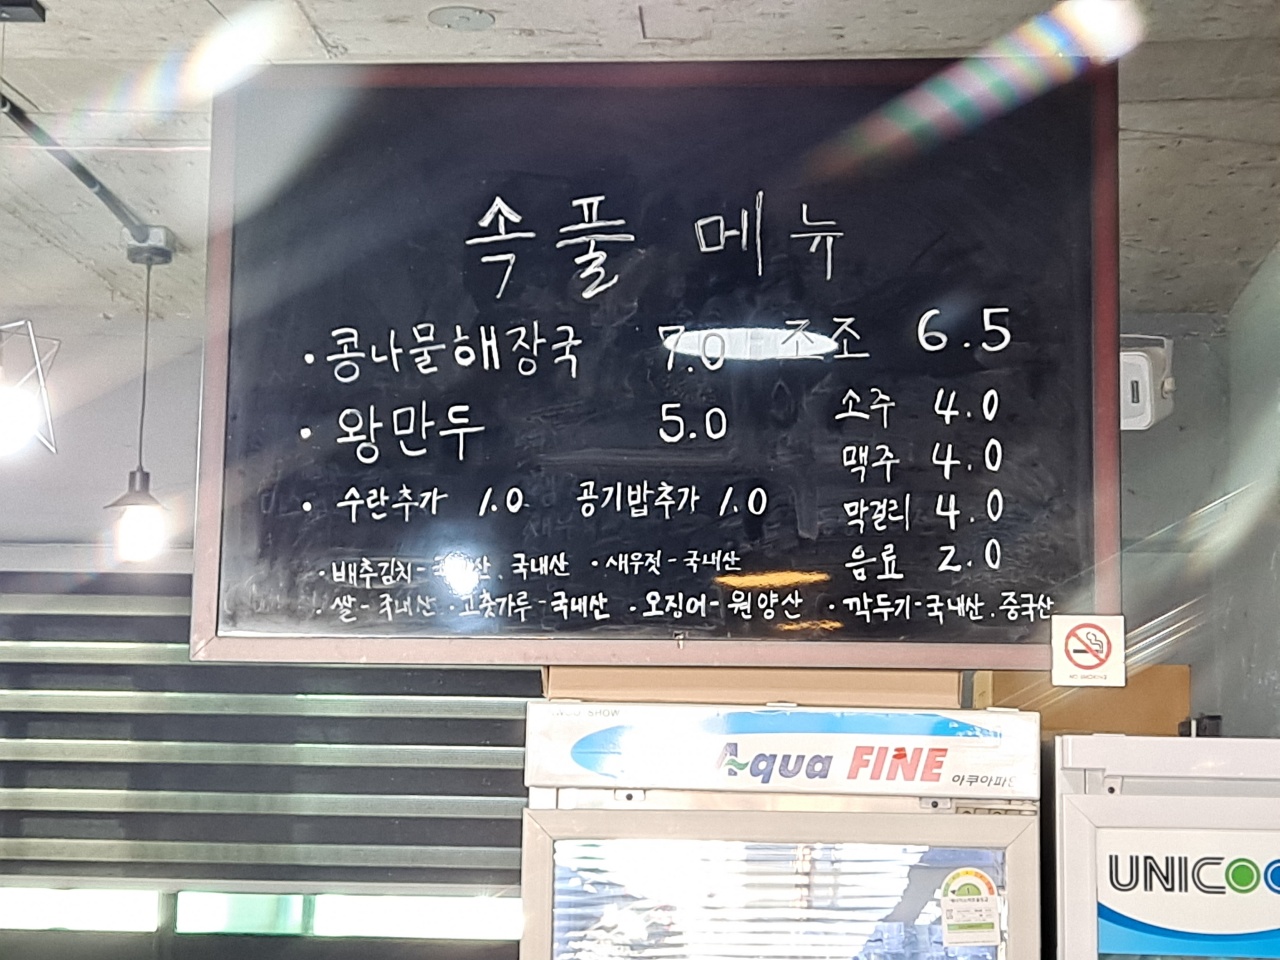 속풀 메뉴
· 콩나물해장국 7.0 조조 6.5
· 왕만두 5.0 소주 4.0
맥주 4.0
· 수란추가 1.0 공기밥추가 1.0 막걸리 4.0
음료 2.0
· 배추김치 - 국내산 . 국내산 · 새우젓 - 국내산
· 쌀 - 국내산 · 고춧가루 - 국내산 · 오징어 - 원양산 · 깍두기 - 국내산 . 중국산
NO SMOKING
SHOW
Aqua FINE 아쿠아파인
UNICO